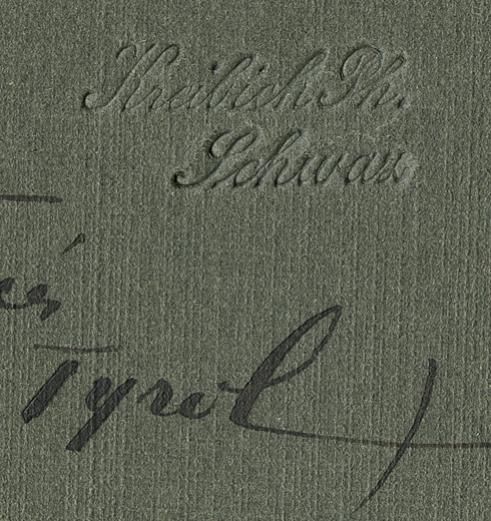 Kreibich Ph.
Schwaz
Tyrol)